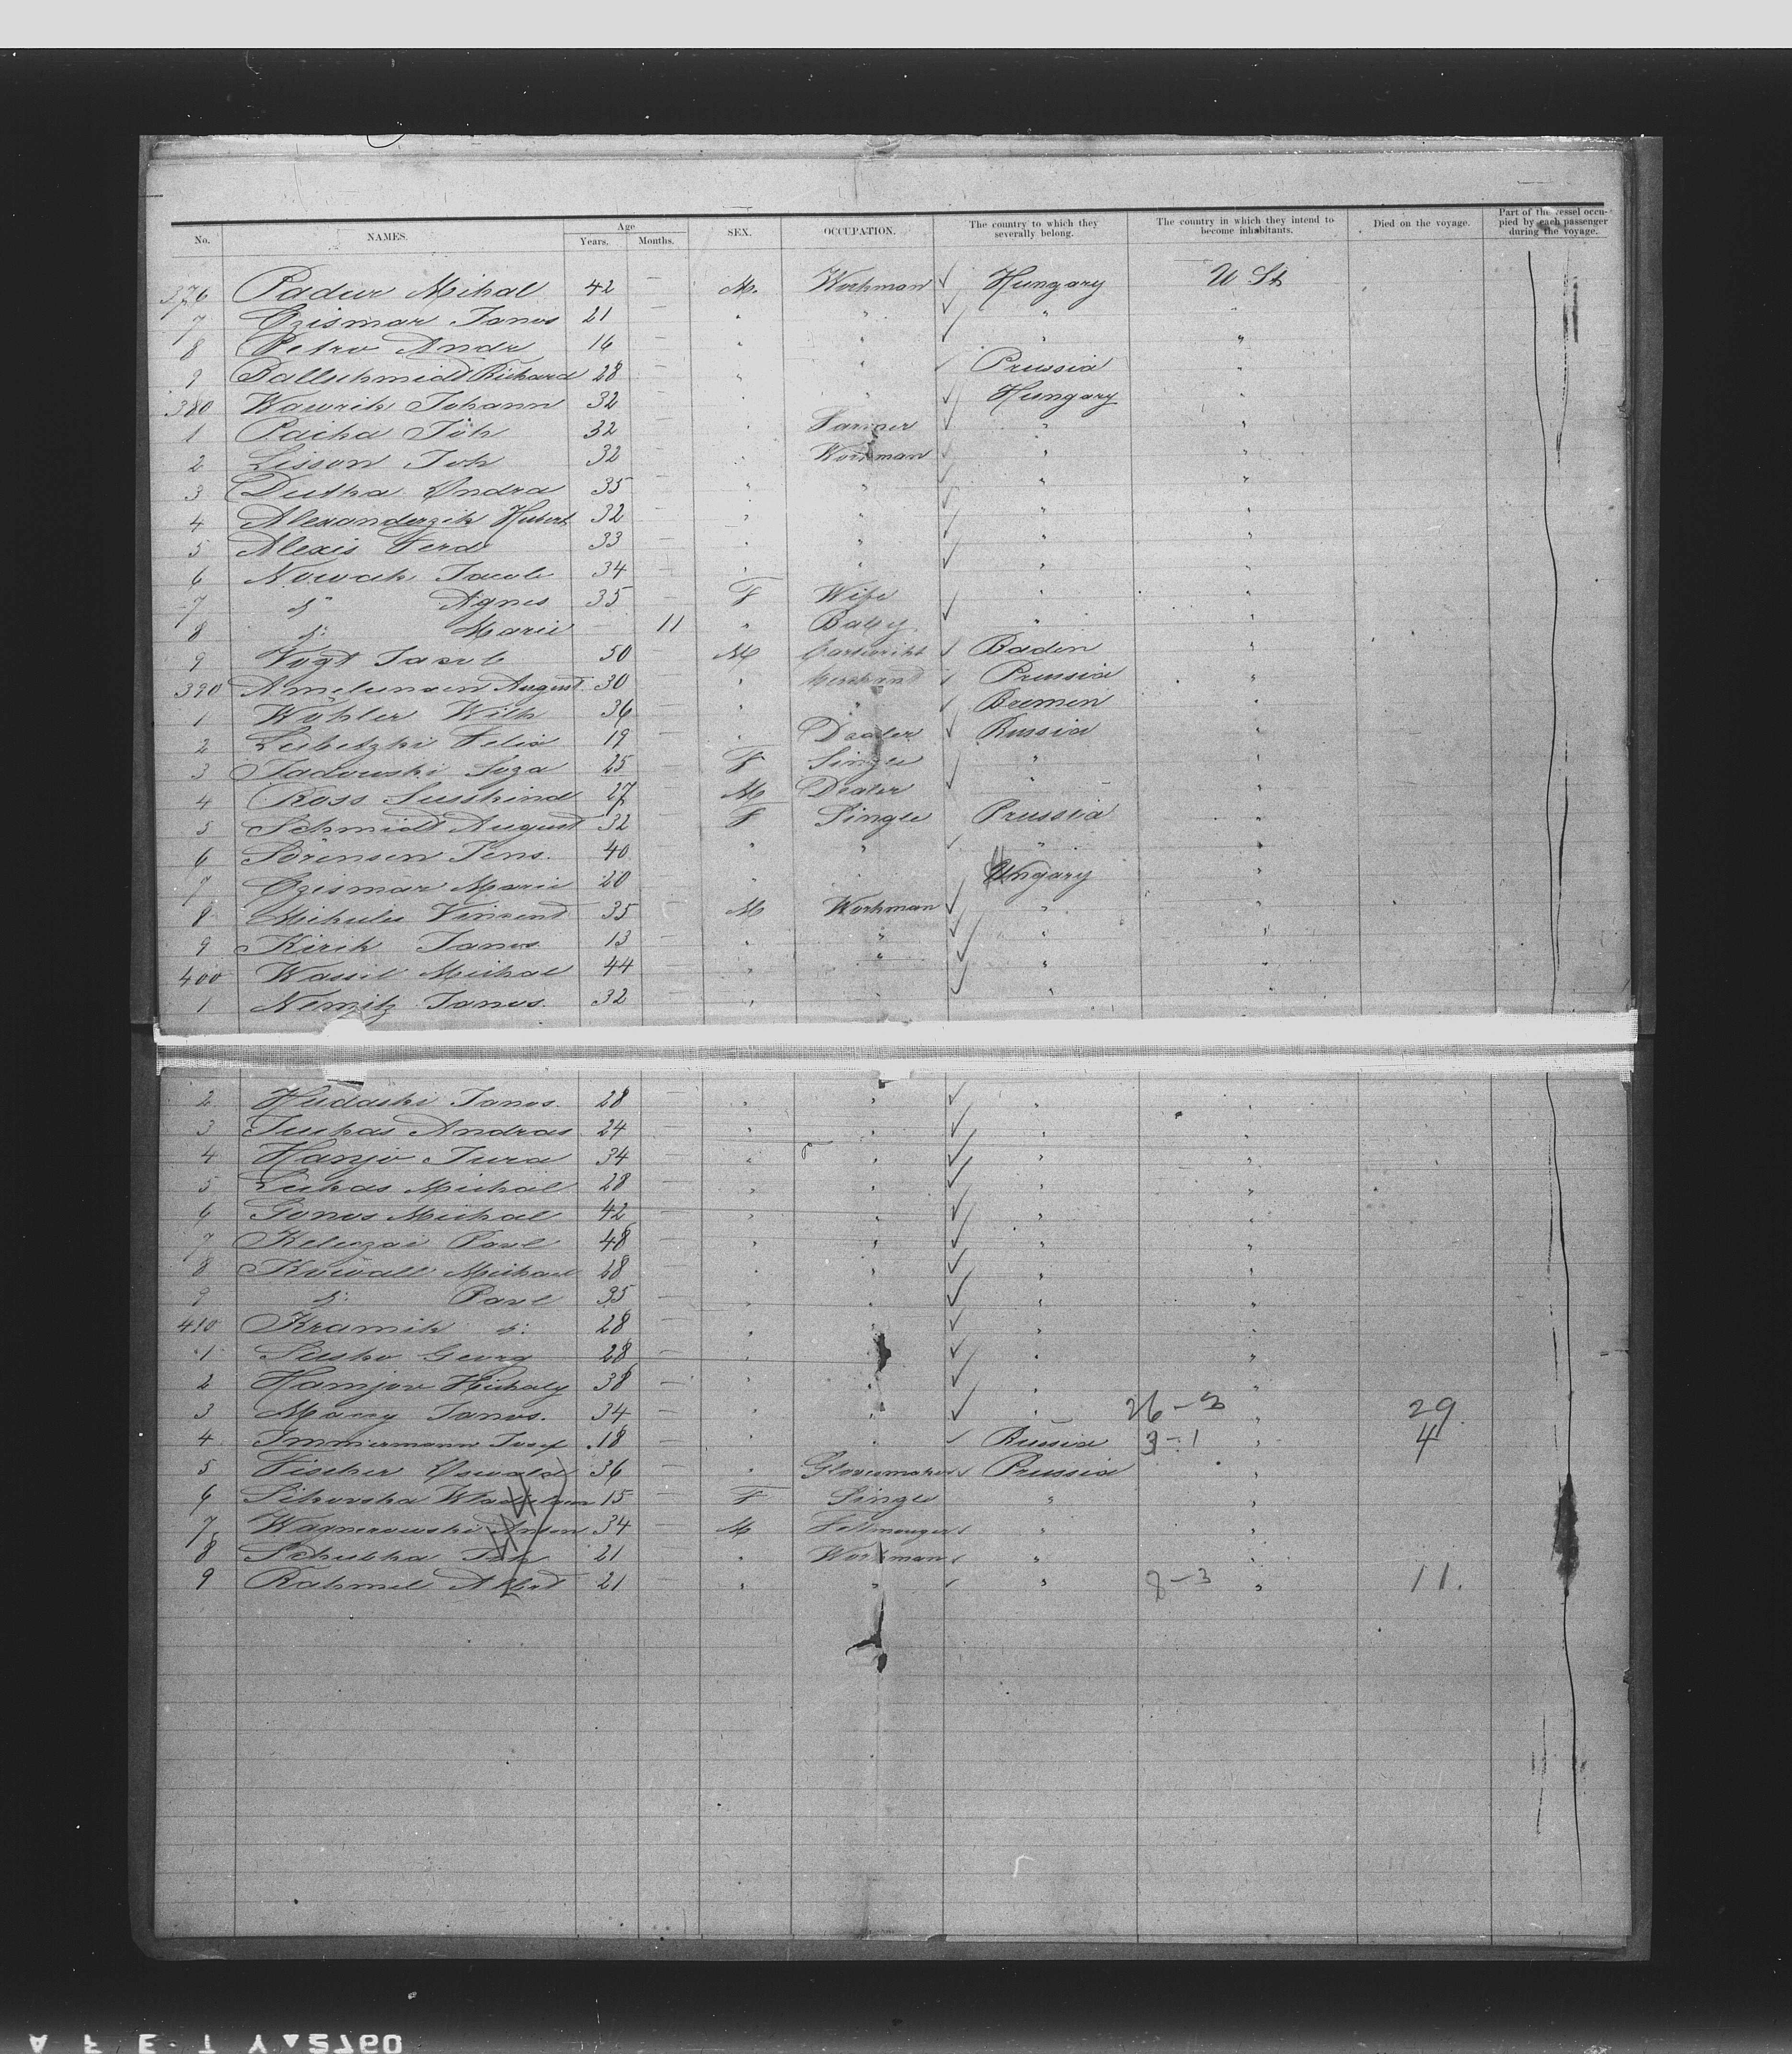 No. NAMES. Age Years. Months. SEX. OCCUPATION. The country to which they severally belong. The country in which they intend to become inhabitants. Died on the voyage. Part of the vessel occupied by each passenger during the voyage.
376 Padur Mihal 42 — M. Workman ✓ Hungary U St
7 Czismar Janos 21 — " " ✓ " "
8 Petro Andr 16 — " " ✓ " "
9 Ballschmidt Richard 28 — " " ✓ Prussia "
380 Wawrik Johann 32 — " " ✓ Hungary "
1 Paiha Joh 32 — " Farmer ✓ " "
2 Lisson Joh 32 — " Workman ✓ " "
3 Dutka Andra 35 — " " ✓ " "
4 Alexanderzik Hubert 32 — " " ✓ " "
5 Alexis Ferd 33 — " " ✓ " "
6 Nowak Jacob 34 — " " ✓ " "
7 d: Agnes 35 F Wife " "
8 d: Marie — 11 " Baby ✓ " "
9 Vogt Jacob 50 — M Cartwright ✓ Baden "
390 Amelunxen August 30 — " Merchand ✓ Prussia "
1 Wöhler Wilh 36 — " " ✓ Bremen "
2 Lubetzki Felix 19 — " Dealer ✓ Russia "
3 Sadowski 25 — F Single " "
4 Ross Susskind 27 — M Dealer ✓ " "
5 Schmidt August 32 — F Single Prussia "
6 Sörensen Jens. 40 — " " ✓ " "
7 Czismar Marie 20 — " " Hungary "
8 Vincent 35 — M Workman ✓ " "
9 Kirik Janos 13 — " " ✓ " "
400 Wassil Michal 44 — " " ✓ " "
1 Nemitz Janos. 32 — " " ✓ " "
2 Hudaski Janos. 28 — " " ✓ " "
3 Juhas Andras 24 — " " ✓ " "
4 Hanjo Jura 34 — " " ✓ " "
5 Lukas Michal 28 — " " ✓ " "
6 Michal 42 — " " ✓ " "
7 Pavel 48 — " " ✓ " "
8 Kowall Michael 28 — " " ✓ " "
9 d: Pavel 35 — " " ✓ " "
410 Kramik d: 28 — " " ✓ " "
1 Georg 28 — " " ✓ " "
2 Hamjov Mihaly 38 — " " ✓ " "
3 Janos. 34 — " " ✓ " 26-3 " 29
4 Immermann Josef 18 — " " ✓ Russia 3-1 " 4
5 Fischer Oswald 36 — " Glovemaker ✓ Prussia "
6 Sikorska 15 — F Single " "
7 Anton 34 — M Fellmonger ✓ " "
8 Joh 21 — " Workman ✓ " "
9 Rahmel Albert 21 — " " ✓ " 8-3 " 11.
A F E T Y ▲ 5760